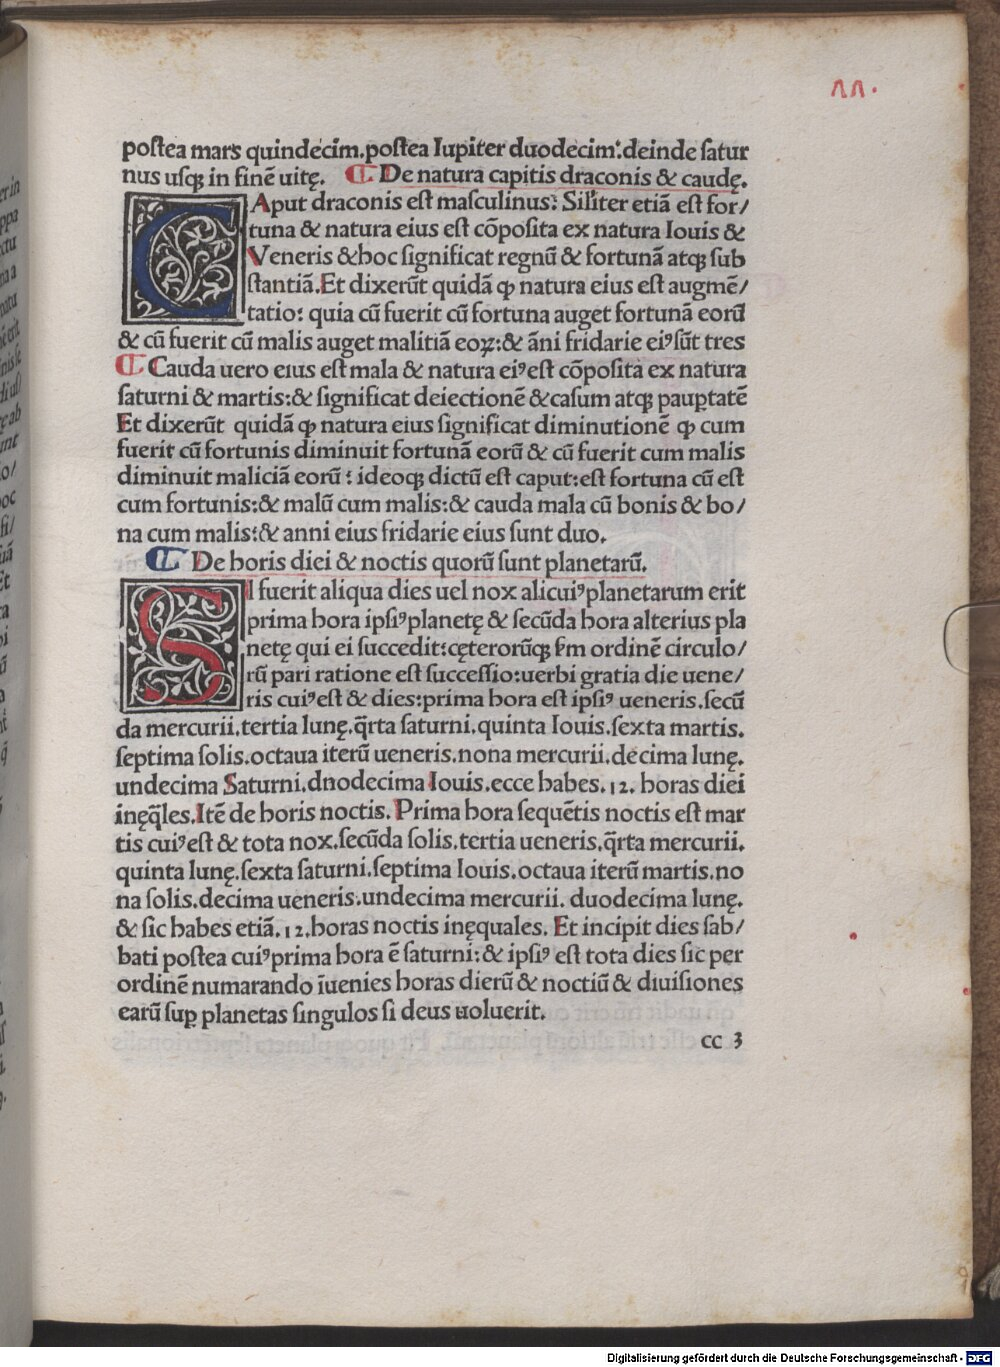 11.
postea mars quindecim.postea Iupiter duodecim:deinde satur
nus usqꝫ in finē uitę. ¶ De natura capitis draconis & caudę.
CAput draconis est masculinus: Siliter etiā est for/
tuna & natura eius est cōposita ex natura Iouis &
Veneris & hoc significat regnū & fortunā atqꝫ sub
stantiā.Et dixerūt quidā ꝙ natura eius est augmē/
tatio: quia cū fuerit cū fortuna auget fortunā eorū
& cū fuerit cū malis auget malitiā eoꝝ:& āni fridarie eiꝰ sūt tres
¶ Cauda uero eius est mala & natura eiꝰ est cōposita ex natura
saturni & martis:& significat deiectionē & casum atqꝫ paup̄tatē
Et dixerūt quidā ꝙ natura eius significat diminutionē ꝙ cum
fuerit cū fortunis diminuit fortunā eorū & cū fuerit cum malis
diminuit maliciā eorū : ideoqꝫ dictū est caput:est fortuna cū est
cum fortunis:& malū cum malis:& cauda mala cū bonis & bo/
na cum malis:& anni eius fridarie eius sunt duo.
¶ De horis diei & noctis quorū sunt planetarū.
SI fuerit aliqua dies uel nox alicuiꝰ planetarum erit
prima hora ipsiꝰ planetę & secūda hora alterius pla
netę qui ei succedit:cęterorūqꝫ ẜm ordinē circulo/
rū pari ratione est successio:uerbi gratia die uene/
ris cuiꝰ est & dies:prima hora est ipsiꝰ ueneris.secū
da mercurii.tertia lunę.q̄rta saturni.quinta Iouis.sexta martis.
septima solis.octaua iterū ueneris.nona mercurii.decima lunę.
undecima Saturni.dnodecima Iouis.ecce habes.12. horas diei
inęq̄les.Itē de horis noctis. Prima hora sequētis noctis est mar
tis cuiꝰ est & tota nox.secūda solis.tertia ueneris.q̄rta mercurii.
quinta lunę.sexta saturni.septima Iouis.octaua iterū martis.no
na solis.decima ueneris.undecima mercurii. duodecima lunę.
& sic habes etiā.12.horas noctis inęquales. Et incipit dies sab/
bati postea cuiꝰ prima hora ē saturni:& ipsiꝰ est tota dies sic per
ordinē numerando īuenies horas dierū & noctiū & diuisiones
earū suꝑ planetas singulos si deus uoluerit.
cc 3
Digitalisierung gefördert durch die Deutsche Forschungsgemeinschaft - DFG